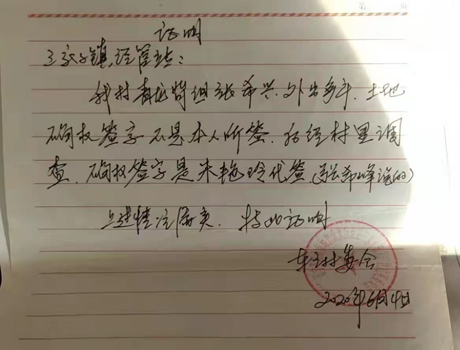 证明
王家子镇经管站:
我村青龙背组张希兴,外出多年,土地
确权签字不是本人所签,后经村里调
查,确权签字是朱艳玲代签(张希峰说的)
上述情况属实,特此证明
车主村委会
2020年6月4日